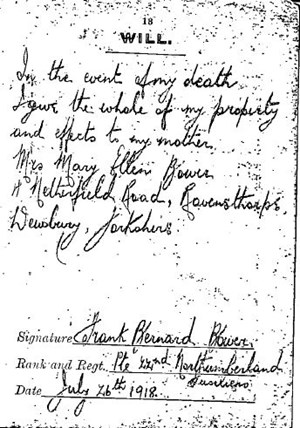 18
WILL.
In the event of my death
I give the whole of my property
and effects to my mother
Mrs Mary Ellen Bower
Netherfield Road, Ravensthorpe,
Dewsbury, Yorkshers
Signature Frank Bernard Bower
Rank and Regt. Pte 22nd Northumberland
Fusiliers
Date July 26th 1918.